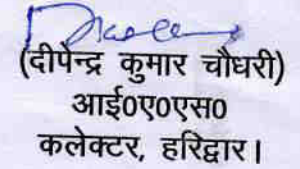 (दीपेन्द्र कुमार चौधरी)
आई०ए०एस०
कलेक्टर, हरिद्वार।